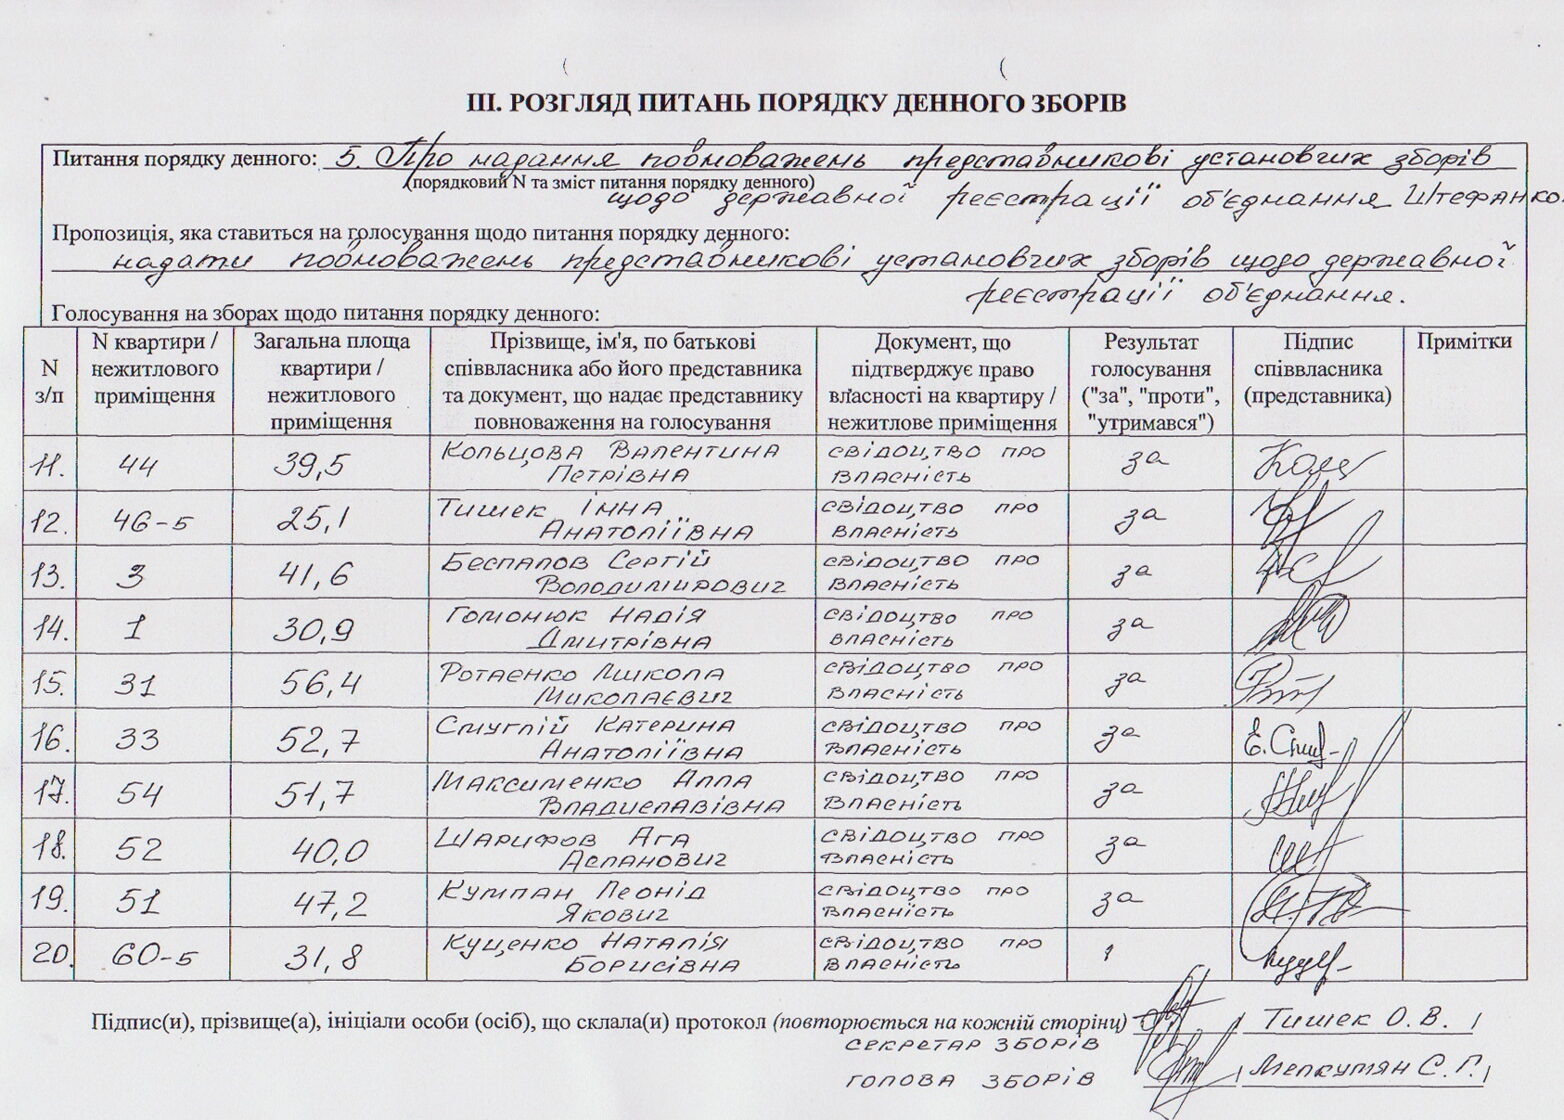 ІІІ. РОЗГЛЯД ПИТАНЬ ПОРЯДКУ ДЕННОГО ЗБОРІВ
Питання порядку денного: 5. Про надання повноважень представникові установчих зборів
(порядковий N та зміст питання порядку денного)
щодо державної реєстрації об'єднання Штефанко.
Пропозиція, яка ставиться на голосування щодо питання порядку денного:
надати повноважень представникові установчих зборів щодо державної
реєстрації об'єднання.
Голосування на зборах щодо питання порядку денного:
N з/п | N квартири / нежитлового приміщення | Загальна площа квартири / нежитлового приміщення | Прізвище, ім'я, по батькові співвласника або його представника та документ, що надає представнику повноваження на голосування | Документ, що підтверджує право власності на квартиру / нежитлове приміщення | Результат голосування ("за", "проти", "утримався") | Підпис співвласника (представника) | Примітки
11. 44 39,5 Кольцова Валентина Петрівна свідоцтво про власність за
12. 46-5 25,1 Тишек Інна Анатоліївна свідоцтво про власність за
13. 3 41,6 Беспалов Сергій Володимирович свідоцтво про власність за
14. 1 30,9 Гомонюк Надія Дмитрівна свідоцтво про власність за
15. 31 56,4 Ротаенко Микола Миколаєвич свідоцтво про власність за
16. 33 52,7 Смуглій Катерина Анатоліївна свідоцтво про власність за Е. Сму
17. 54 51,7 Максименко Алла Владиславівна свідоцтво про власність за
18. 52 40,0 Шарифов Ага Асланович свідоцтво про власність за
19. 51 47,2 Кумпан Леонід Якович свідоцтво про власність за
20. 60-5 31,8 Куценко Наталія Борисівна свідоцтво про власність
Підпис(и), прізвище(а), ініціали особи (осіб), що склала(и) протокол (повторюється на кожній сторінці) Тишек О.В.
секретар зборів
голова зборів Мелкумян С.Г.